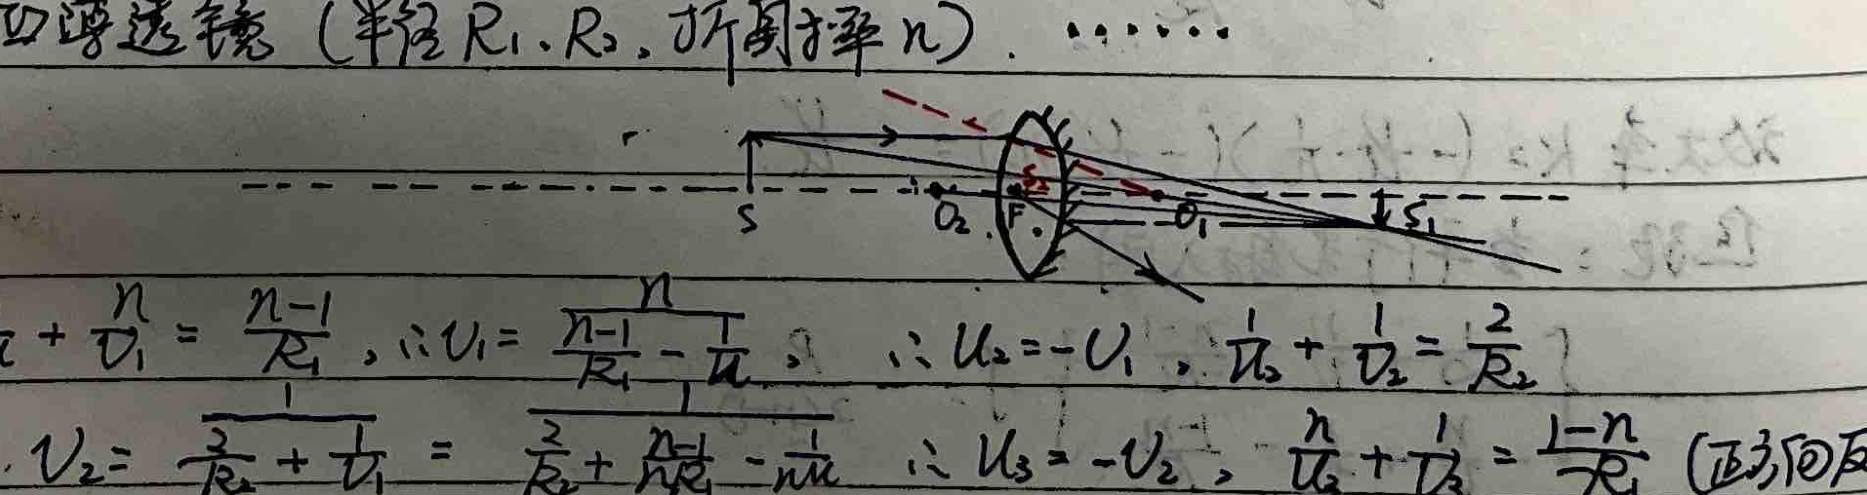 薄透镜 (半径 R₁、R₂, 折射率 n). ......
S O₂ F S₂ O₁ S₁
+ n/v₁ = (n-1)/R₁, ∴ v₁ = n/((n-1)/R₁ - 1/u), ∴ u₂ = -v₁, 1/u₂ + 1/v₂ = 2/R₂
v₂ = 1/(2/R₂ + 1/v₁) = 1/(2/R₂ + (n-1)/(nR₁) - 1/(nu)) ∴ u₃ = -v₂, n/u₃ + 1/v₃ = (1-n)/(-R₁) (正方向反